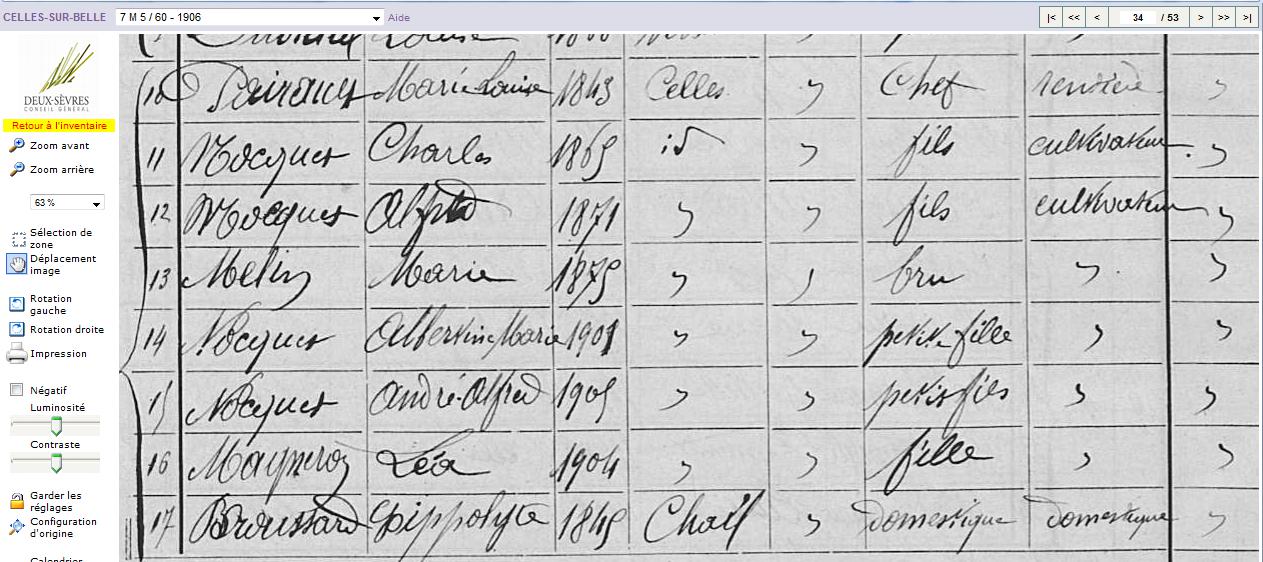 CELLES-SUR-BELLE 7 M 5 / 60 - 1906 Aide |< << < 34 / 53 > >> >|
DEUX-SÈVRES
CONSEIL GÉNÉRAL
Retour à l'inventaire
Zoom avant
Zoom arrière
63 %
Sélection de
zone
Déplacement
image
Rotation
gauche
Rotation droite
Impression
Négatif
Luminosité
Contraste
Garder les
réglages
Configuration
d'origine
Calendrier
Louise
10 Marie Louise 1843 Celles " Chef rentière "
11 Nocquet Charles 1869 id " fils cultivateur "
12 Nocquet Alfred 1871 " " fils cultivateur "
13 Melin Marie 1875 " " bru " "
14 Nocquet Albertine Marie 1901 " " petite fille " "
15 Nocquet André-Alfred 1905 " " petit fils " "
16 Léa 1904 " " fille " "
17 Broussard Hippolyte 1845 Chail " domestique domestique "